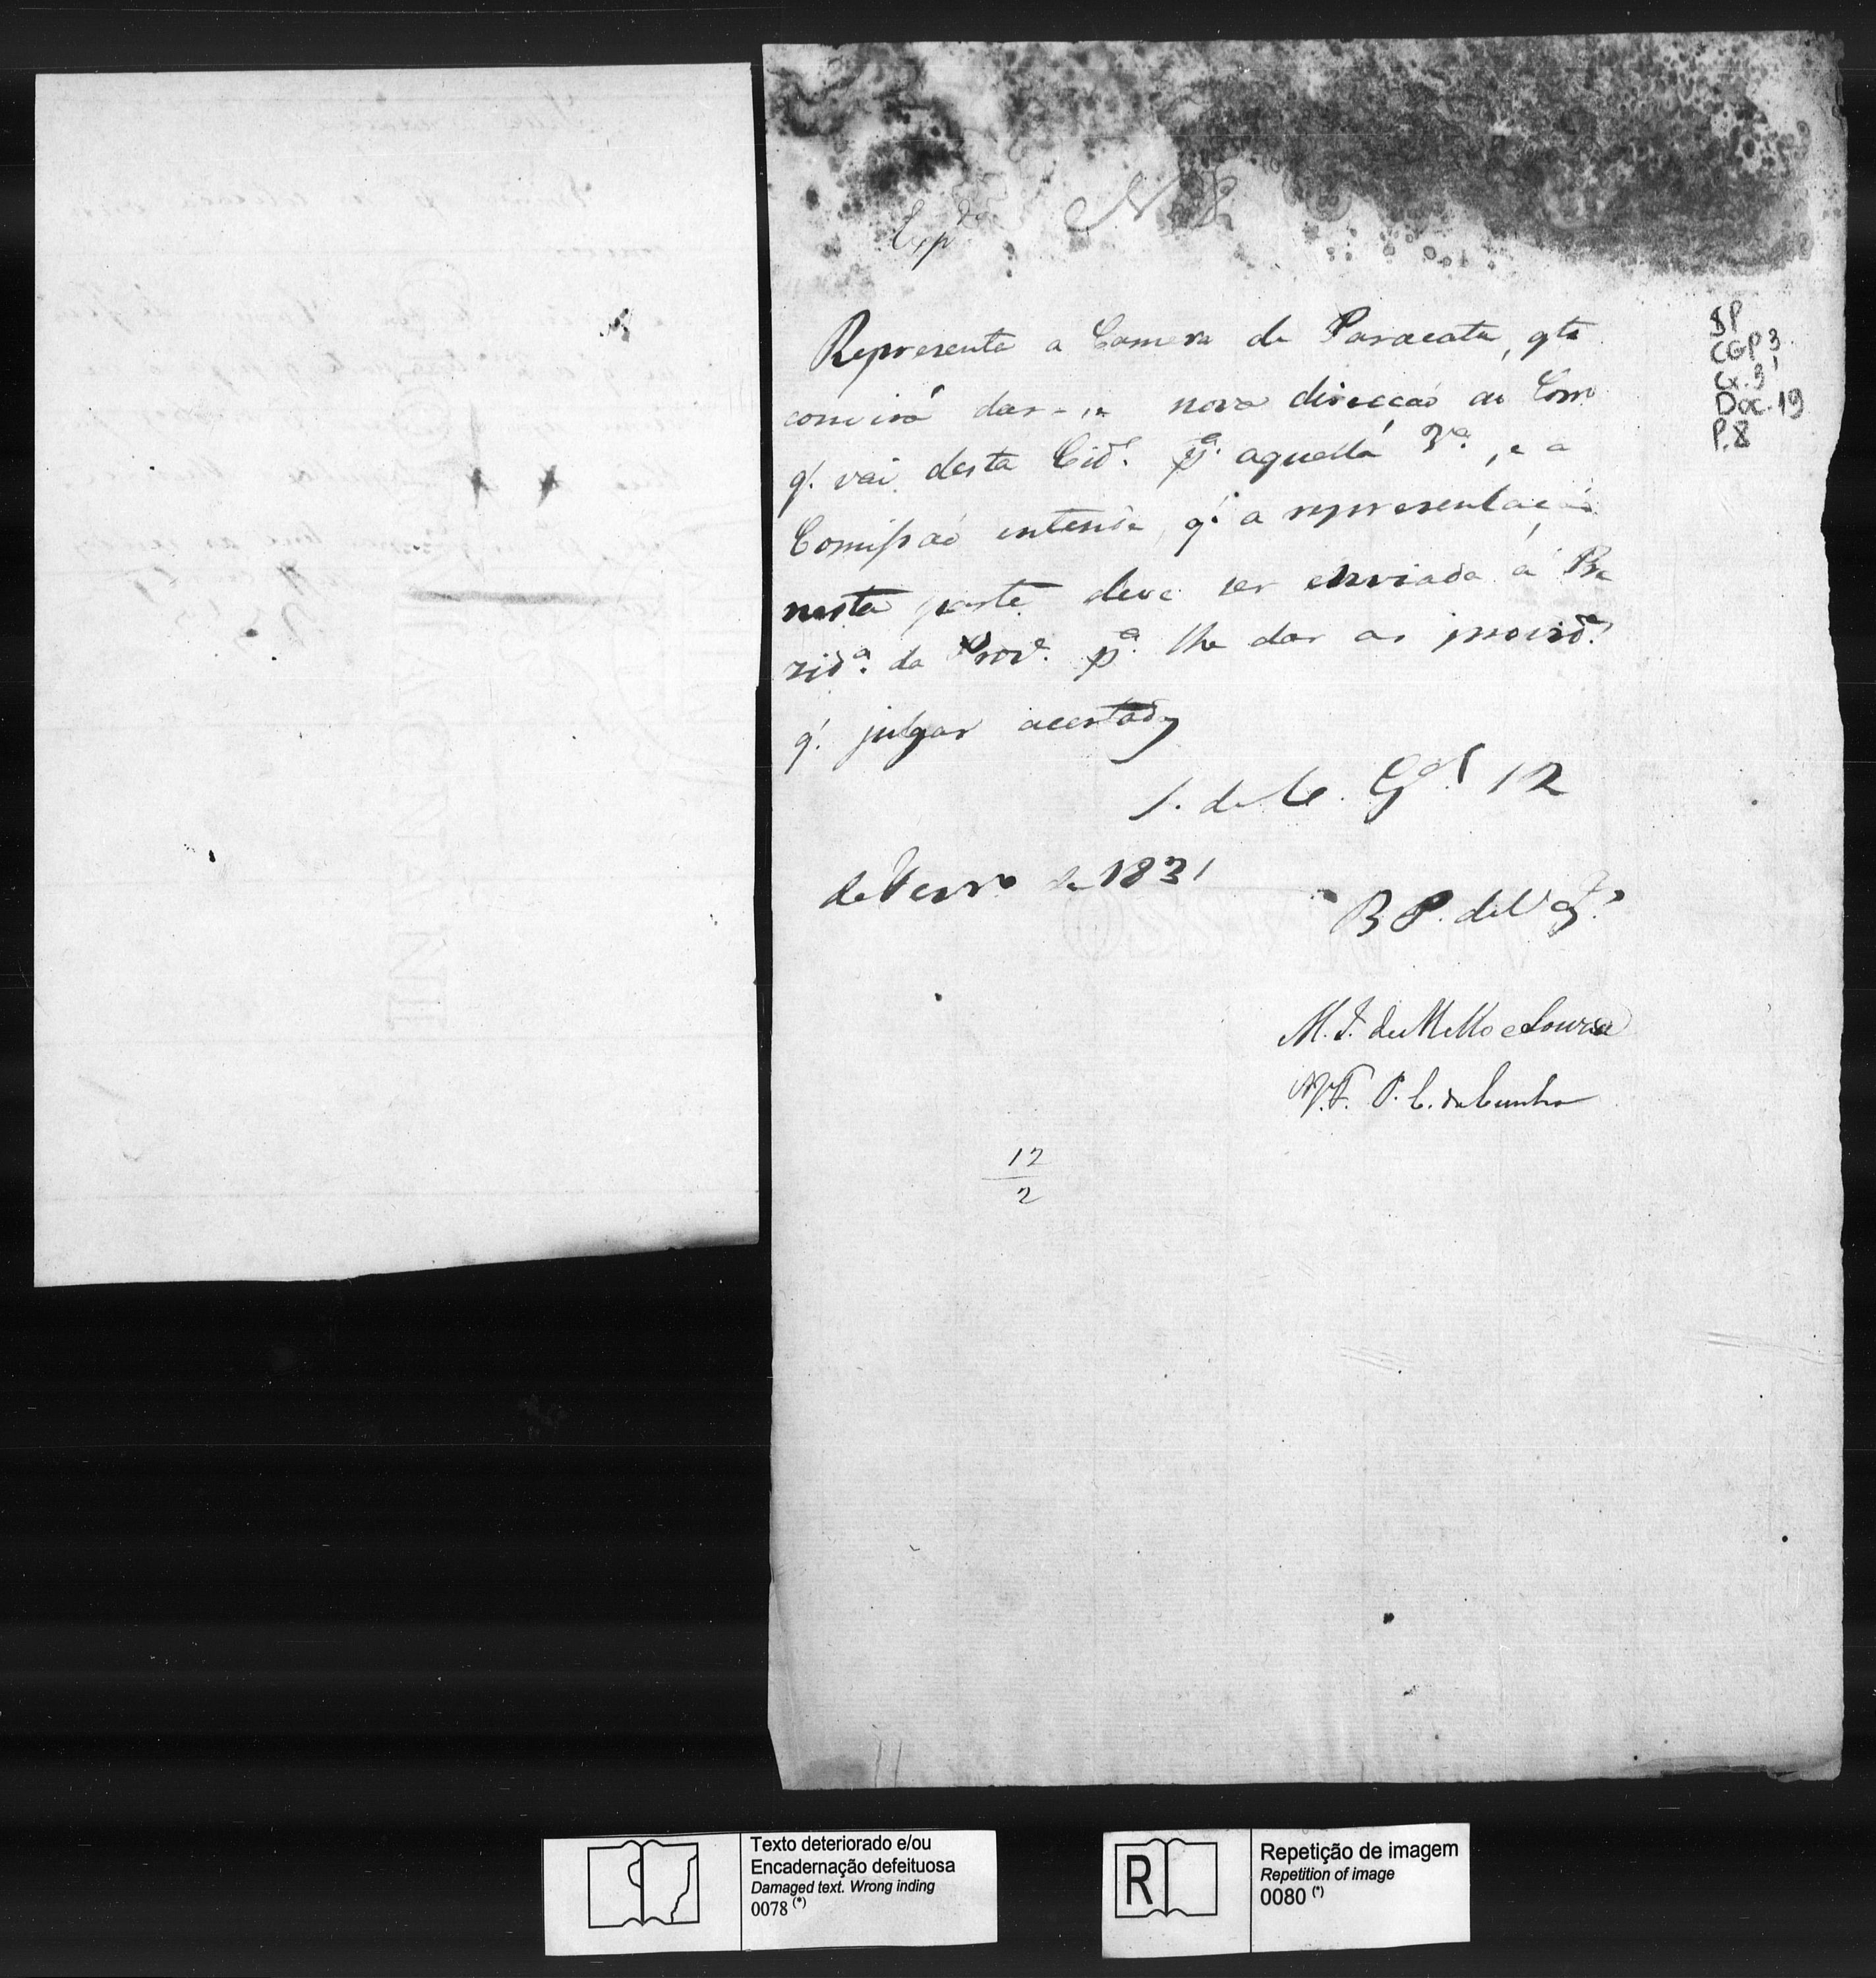 N 8
Exp.do
Representa a Camera de Paracatu, qto
convirá dar-se nova direcção ao Corrº
q.' vai desta Cid.e p.a aquella V.a, e a
Comissaõ entende, q.' a representaçaõ
nesta parte deve ser enviada á Pre
zid.a da Prov.a p.a lhe dar as provid.as
q.' julgar acertadas
S. do C. G.al 12
de Fever.o de 1831
B P. de V.os
M. I. de Mello e Souza
P. C. da Cunha
12
2
SP
CGP 3
Cx. 31
Doc. 19
P. 8
Texto deteriorado e/ou
Encadernação defeituosa
Damaged text. Wrong inding
0078 (*)
R
Repetição de imagem
Repetition of image
0080 (*)